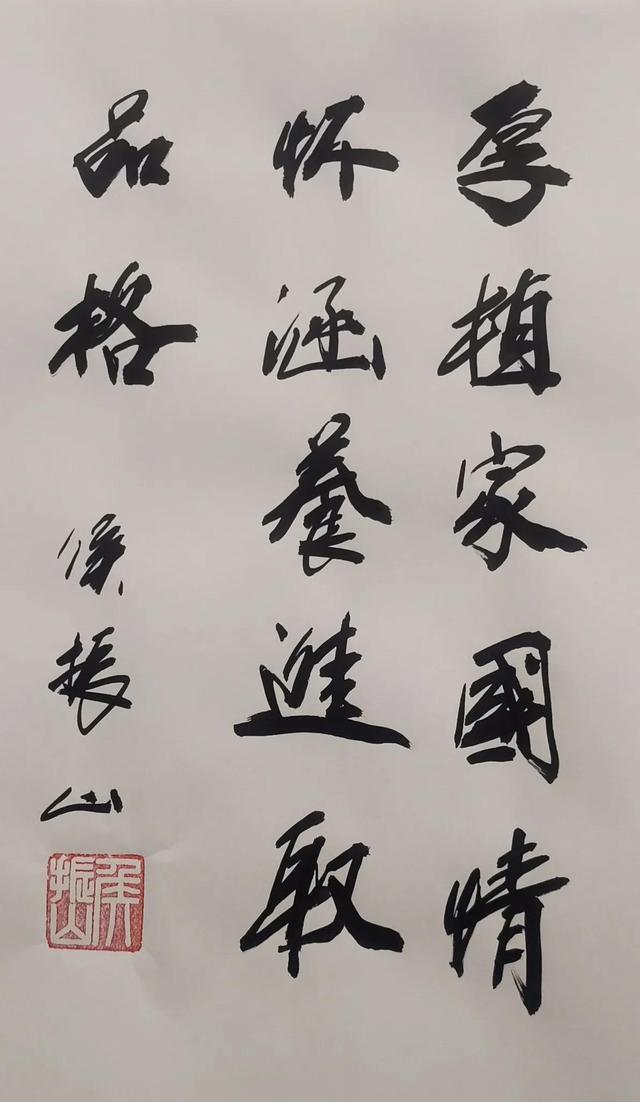 厚植家國情
怀涵養進取
品格
侯振山
侯振山